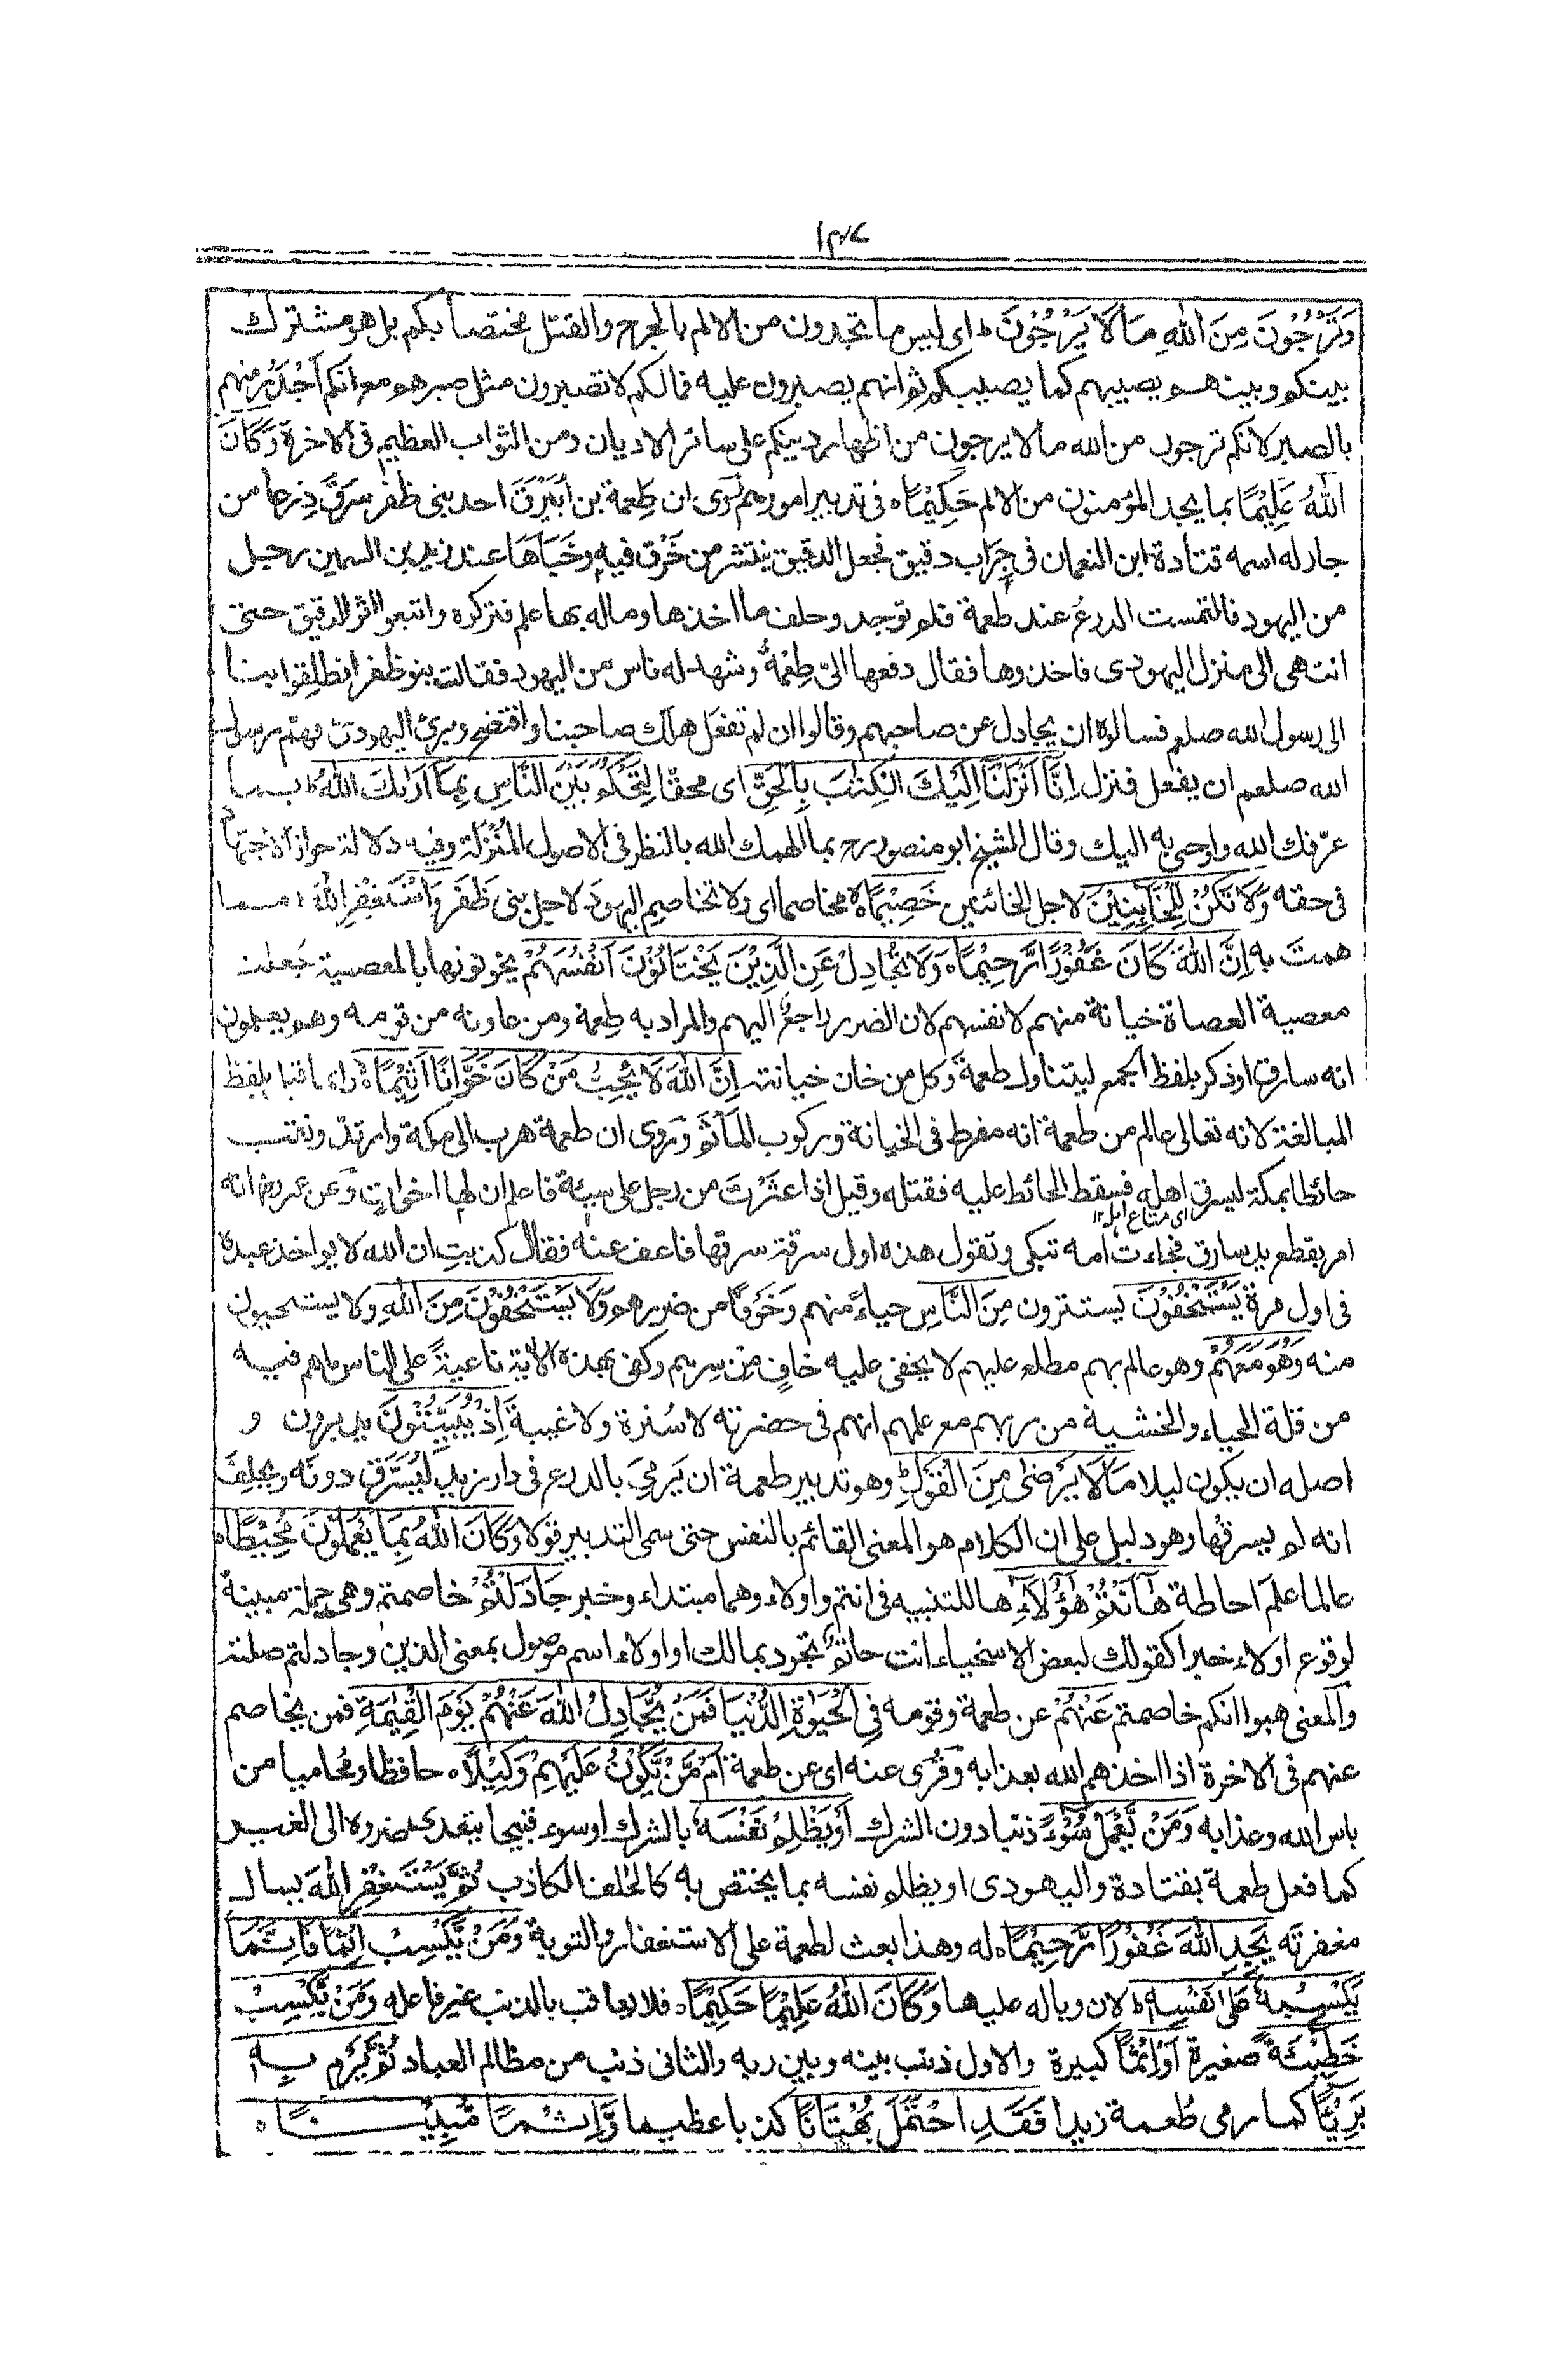 وَتَرْجُوْنَ مِنَ اللّٰهِ مَا لَا يَرْجُوْنَ ط اى ليس ما تجدون من الالم بالجرح والقتل مختصا بكم بل هو مشترك
بينكم وبينهم يصيبهم كما يصيبكم ثم انهم يصبرون عليه فما لكم لا تصبرون مثل صبرهم مع انكم اَجْدَرُ منهم
بالصبر لانكم ترجون من الله ما لا يرجون من اظهار دينكم على سائر الاديان ومن الثواب العظيم فى الاخرة وَكَانَ
اللّٰهُ عَلِيْمًا بما يجد المؤمنون من الالم حَكِيْمًا ه فى تدبير امورهم رُوى ان طِعمة بن اُبَيْرِقَ احد بنى ظفر سَرَقَ دِرعا من
جار له اسمه قتادة ابن النعمان فى جِرَاب دقيق فجعل الدقيق ينتثر من خَرْق فيه وخَبَاَهَا عند زيد بن السمين رجل
من اليهود فالتمست الدرعُ عند طعمة فلم توجد وحلف ما اخذها وماله بها علم فتركوه واتبعوا اثر الدقيق حتى
انتهى الى منزل اليهودى فاخذوها فقال دفعها الىّ طِعْمَةُ وشهد له ناس من اليهود فقالت بنو ظفر انطلِقوا بنا
الى رسول الله صلعم فسالوه ان يجادل عن صاحبهم وقالوا ان لم تفعل هلك صاحبنا وافتضح وبرئ اليهودىّ فهمّ رسول
الله صلعم ان يفعل فنزل اِنَّا اَنْزَلْنَا اِلَيْكَ الْكِتٰبَ بِالْحَقِّ اى محقّا لِتَحْكُمَ بَيْنَ النَّاسِ بِمَا اَرٰىكَ اللّٰهُ ط بما
عرّفك الله واوحى به اليك وقال الشيخ ابو منصور رح بما الهمك الله بالنظر فى الاصول المُنْزَلَة وفيه دلالة جواز الاجتهاد
فى حقه وَلَا تَكُنْ لِّلْخَآئِنِيْنَ لاجل الخائنين خَصِيْمًا ه مخاصما اى ولا تخاصِم اليهودَ لاجل بنى ظَفَر وَاسْتَغْفِرِ اللّٰهَ ط مما
همتَ به اِنَّ اللّٰهَ كَانَ غَفُوْرًا رَّحِيْمًا ه وَلَا تُجَادِلْ عَنِ الَّذِيْنَ يَخْتَانُوْنَ اَنْفُسَهُمْ يخونونها بالمعصية جُعلت
معصية العصاة خيانة منهم لانفسهم لان الضرر راجعٌ اليهم والمراد به طِعمة ومن عاونه من قومه وهم يعلمون
انه سارق او ذكر بلفظ الجمع ليتناول طعمةَ وكل من خان خيانته اِنَّ اللّٰهَ لَا يُحِبُّ مَنْ كَانَ خَوَّانًا اَثِيْمًا ه بلفظ
المبالغة لانه تعالى عالم من طعمة انه مفرط فى الخيانة وركوب المآثم ورُوى ان طعمة هرب الى مكة وارتدّ ونقب
حائطا بمكة ليسرق اهله فسقط الحائط عليه فقتله وقيل اذا عَثَرْتَ من رجل على سيئة فاعلم ان لها اخواتٍ وعن عمر رض انه
اى متاع اهله ١٢
امر بقطع يد سارق فجاءت امه تبكى وتقول هذه اول سرقة سرقها فاعف عنه فقال كذبتِ ان الله لا يواخذ عبده
فى اول مرة يَسْتَخْفُوْنَ يستترون مِنَ النَّاسِ حياءً منهم وخَوفًا من ضررهم وَلَا يَسْتَخْفُوْنَ مِنَ اللّٰهِ ولا يستحيون
منه وَهُوَ مَعَهُمْ وهو عالم بهم مطلع عليهم لا يخفى عليه خافٍ مِن سِرهم وكفى بهذه الاية ناعيةً على الناس ما هم فيه
من قلة الحياء والخشية من ربهم مع علمهم انهم فى حضرته لا سُترة ولا غيبةَ اِذْ يُبَيِّتُوْنَ يدبرون و
اصله ان يكون ليلا مَا لَا يَرْضٰى مِنَ الْقَوْلِ ط وهو تدبير طعمة ان يَرمِيَ بالدرع فى دار زيد لِيُسَرَّقَ دونَه ويحلِفَ
انه لم يسرقها وهو دليل على ان الكلام هو المعنى القائم بالنفس حتى سمى التدبير قولا وَكَانَ اللّٰهُ بِمَا يَعْمَلُوْنَ مُحِيْطًا ه
عالما علمَ احاطة هٰٓاَنْتُمْ هٰٓؤُلَآءِ ها للتنبيه فى انتم واولاء وهما مبتداء وخبر جَادَلْتُمْ خاصمتم وهى جملة مبينةٌ
لوقوع اولاء خبرا كقولك لبعض الاسخياء انت حاتمٌ تجود بمالك او اولاء اسم موصول بمعنى الذين وجادلتم صلته
والمعنى هبوا انكم خاصمتم عَنْهُمْ عن طعمة وقومه فِى الْحَيٰوةِ الدُّنْيَا فَمَنْ يُّجَادِلُ اللّٰهَ عَنْهُمْ يَوْمَ الْقِيٰمَةِ فمن يخاصم
عنهم فى الاخرة اذا اخذهم الله بعذابه وقُرئ عنه اى عن طعمة اَمْ مَّنْ يَّكُوْنُ عَلَيْهِمْ وَكِيْلًا ه حافظا ومُحاميا من
باس الله وعذابه وَمَنْ يَّعْمَلْ سُوْٓءً ذنبا دون الشرك اَوْ يَظْلِمْ نَفْسَهٗ بالشرك او سوء قبيحا يتعدى ضرره الى الغير
كما فعل طعمة بقتادة واليهودى او يظلم نفسه بما يختص به كالحلف الكاذب ثُمَّ يَسْتَغْفِرِ اللّٰهَ يسال
مغفرتَه يَجِدِ اللّٰهَ غَفُوْرًا رَّحِيْمًا ه له وهذا بعث لطعمة على الاستغفار والتوبة وَمَنْ يَّكْسِبْ اِثْمًا فَاِنَّمَا
يَكْسِبُهٗ عَلٰى نَفْسِهٖ ط لان وباله عليها وَكَانَ اللّٰهُ عَلِيْمًا حَكِيْمًا ه فلا يعاقب بالذنب غير فاعله وَمَنْ يَّكْسِبْ
خَطِيْٓئَةً صغيرة اَوْ اِثْمًا كبيرة والاول ذنب بينه وبين ربه والثانى ذنب من مظالم العباد ثُمَّ يَرْمِ بِهٖ
بَرِيْٓئًا كما رمى طُعمة زيدا فَقَدِ احْتَمَلَ بُهْتَانًا كذبا عظيما وَّاِثْمًا مُّبِيْنًا ه